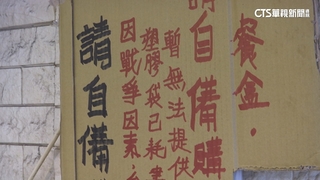 CTS華視新聞
餐盒.
請自備購
暫無法提供
塑膠袋已耗
因戰爭因素,
請自備